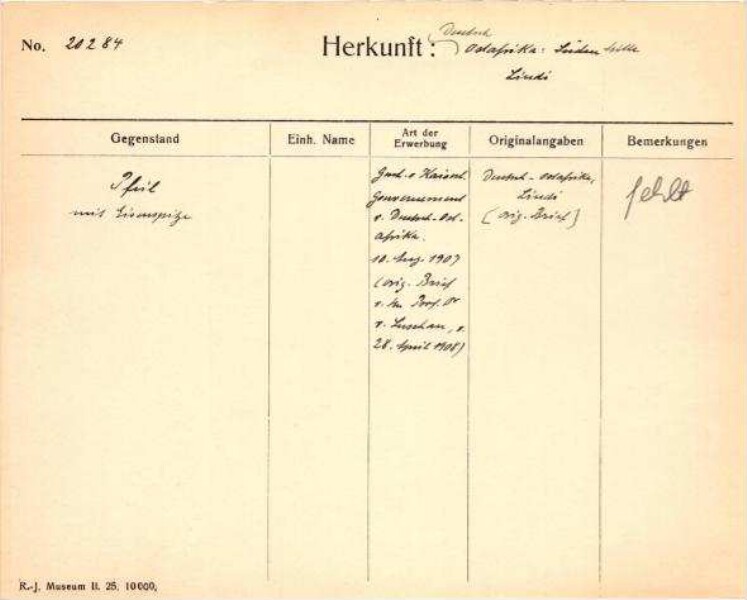 No. 20284
Herkunft: Deutsch
Ostafrika: Süden
Lindi
Gegenstand
Einh. Name
Art der
Erwerbung
Originalangaben
Bemerkungen
Pfeil
mit Eisenspitze
Gouvernement
v. Deutsch-Ost-
afrika.
10. Aug. 1907
(orig. Brief
v. Hn Prof. Dr
v. Luschan, v.
28. April 1908)
Deutsch-Ostafrika,
Lindi
(orig. Brief)
fehlt
R.-J. Museum II. 25. 10000.